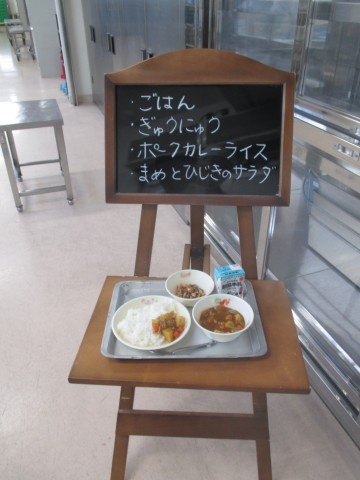 ・ごはん
・ぎゅうにゅう
・ポークカレーライス
・まめとひじきのサラダ